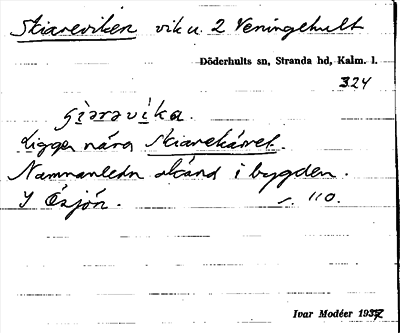 Skiareviken vik u. 2 Veningehult
Döderhults sn, Stranda hd, Kalm. l.
324
ʃiaravika.
Ligger nära Skiarekärret.
Namnanledn okänd i bygden.
I Ősjön. 110.
Ivar Modéer 1937